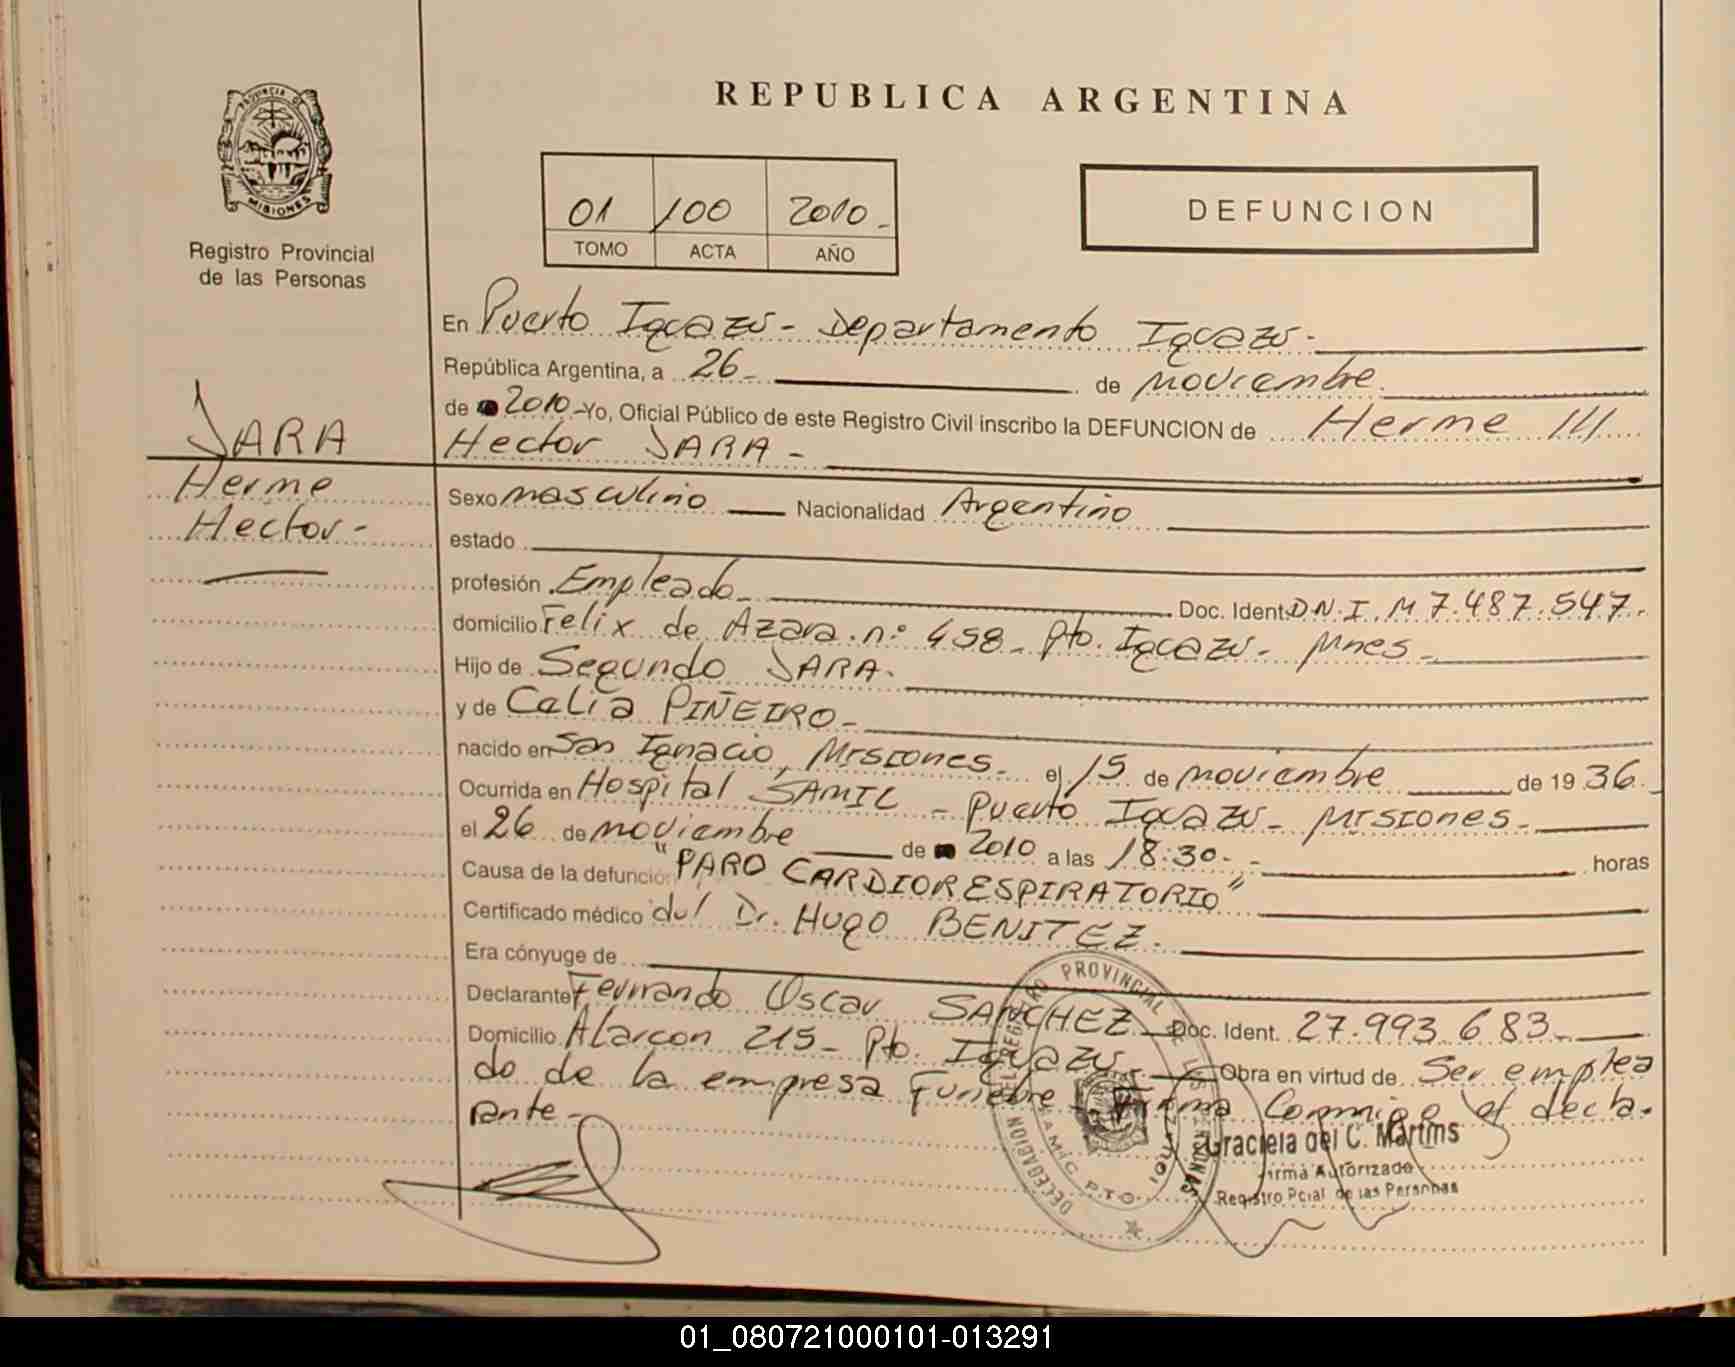 REPUBLICA ARGENTINA
PROVINCIA DE
MISIONES
Registro Provincial
de las Personas
01 100 2010-
TOMO ACTA AÑO
DEFUNCION
En Puerto Iguazu - Departamento Iguazu -
República Argentina, a 26 - de noviembre
de 2010 - Yo, Oficial Público de este Registro Civil inscribo la DEFUNCION de Herme
Hector JARA -
JARA
Herme
Hector -
Sexo masculino Nacionalidad Argentino
estado
profesión Empleado - Doc. Ident. D.N.I. M 7.487.547.
domicilio Felix de Azara n° 458 - Pto. Iguazu - Mnes -
Hijo de Segundo JARA -
y de Celia PIÑEIRO -
nacido en San Ignacio, Misiones - el 15 de noviembre de 1936.
Ocurrida en Hospital SAMIC - Puerto Iguazu - Misiones -
el 26 de noviembre de 2010 a las 18:30 - horas
Causa de la defunción "PARO CARDIORESPIRATORIO"
Certificado médico del Dr. Hugo BENITEZ -
Era cónyuge de
Declarante Fernando Oscar SANCHEZ - Doc. Ident. 27.993.683 -
Domicilio Alarcon 215 - Pto. Iguazu - Obra en virtud de Ser emplea
do de la empresa Funebre - Firma Conmigo el decla-
rante -
DELEGACION DEL REGISTRO PROVINCIAL DE LAS PERSONAS
Graciela del C. Martins
Firma Autorizada
Registro Pcial de las Personas
01_080721000101-013291